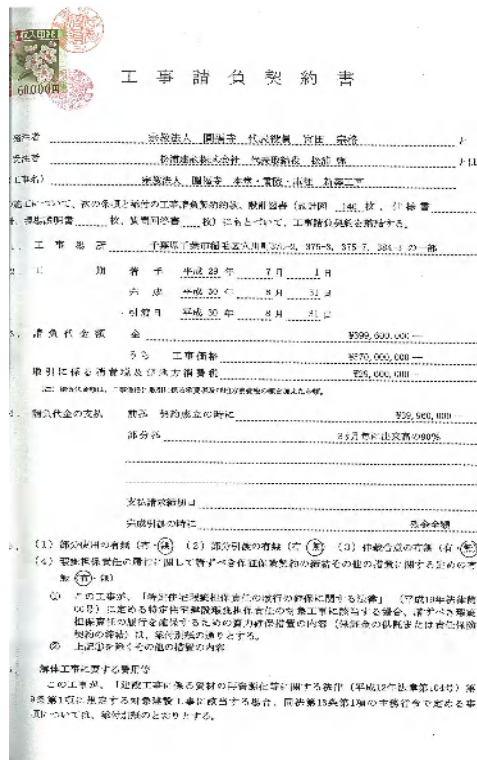 収入印紙
60,000円
工事請負契約書
発注者 宗教法人 代表役員 宮田
受注者 株式会社 代表取締役
工事名) 宗教法人 本堂・庫裡 新築工事
の施工について、次の条項と添付の工事請負契約約款、設計図書(設計図 146 枚、仕様書
現場説明書 枚、質問回答書 枚)にもとづいて、工事請負契約を締結する。
工事場所 千葉県千葉市稲毛区穴川町375-2, 375-3, 375-7, 384-1 の一部
工 期 着 手 平成 29 年 7 月 1 日
完 成 平成 30 年 8 月 31 日
・引渡日 平成 30 年 8 月 31 日
請負代金額 金 ¥399,600,000―
うち 工事価格 ¥370,000,000―
取引に係る消費税及び地方消費税 ¥29,600,000―
(注) 請負代金額は、工事価格に取引に係る消費税及び地方消費税の額を加えた額。
請負代金の支払 前払 契約成立の時に ¥39,960,000―
部分払 出来高の90%
支払請求締切日
完成引渡の時に 残金全額
(1) 部分使用の有無 (有・無) (2) 部分引渡の有無 (有・無) (3) 仲裁合意の有無 (有・無)
(4) 瑕疵担保責任の履行に関して講ずべき保証保険契約の締結その他の措置に関する定めの有
無 (有・無)
① この工事が、「特定住宅瑕疵担保責任の履行の確保に関する法律」 (平成19年法律第
66号) に定める特定住宅建設瑕疵担保責任の対象工事に該当する場合、講ずべき瑕疵
担保責任の履行を確保するための資力確保措置の内容 (保証金の供託または責任保険
契約の締結) は、添付別紙の通りとする。
② 上記①を除くその他の措置の内容
解体工事に要する費用等
この工事が、「建設工事に係る資材の再資源化等に関する法律 (平成12年法律第104号) 第
9条第1項に規定する対象建設工事に該当する場合、同法第13条第1項の主務省令で定める事
項については、添付別紙のとおりとする。